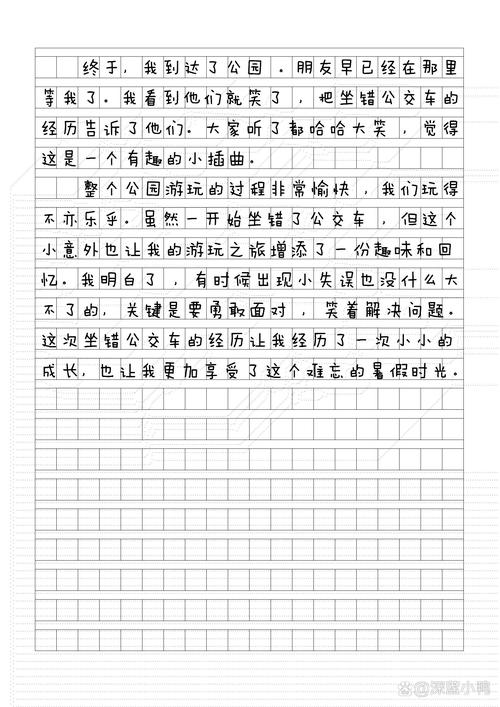 终于，我到达了公园。朋友早已经在那里
等我了。我看到他们就笑了，把坐错公交车的
经历告诉了他们。大家听了都哈哈大笑，觉得
这是一个有趣的小插曲。
整个公园游玩的过程非常愉快，我们玩得
不亦乐乎。虽然一开始坐错了公交车，但这个
小意外也让我的游玩之旅增添了一份趣味和回
忆。我明白了，有时候出现小失误也没什么大
不了的，关键是要勇敢面对，笑着解决问题。
这次坐错公交车的经历让我经历了一次小小的
成长，也让我更加享受了这个难忘的暑假时光。
@深蓝小鸭